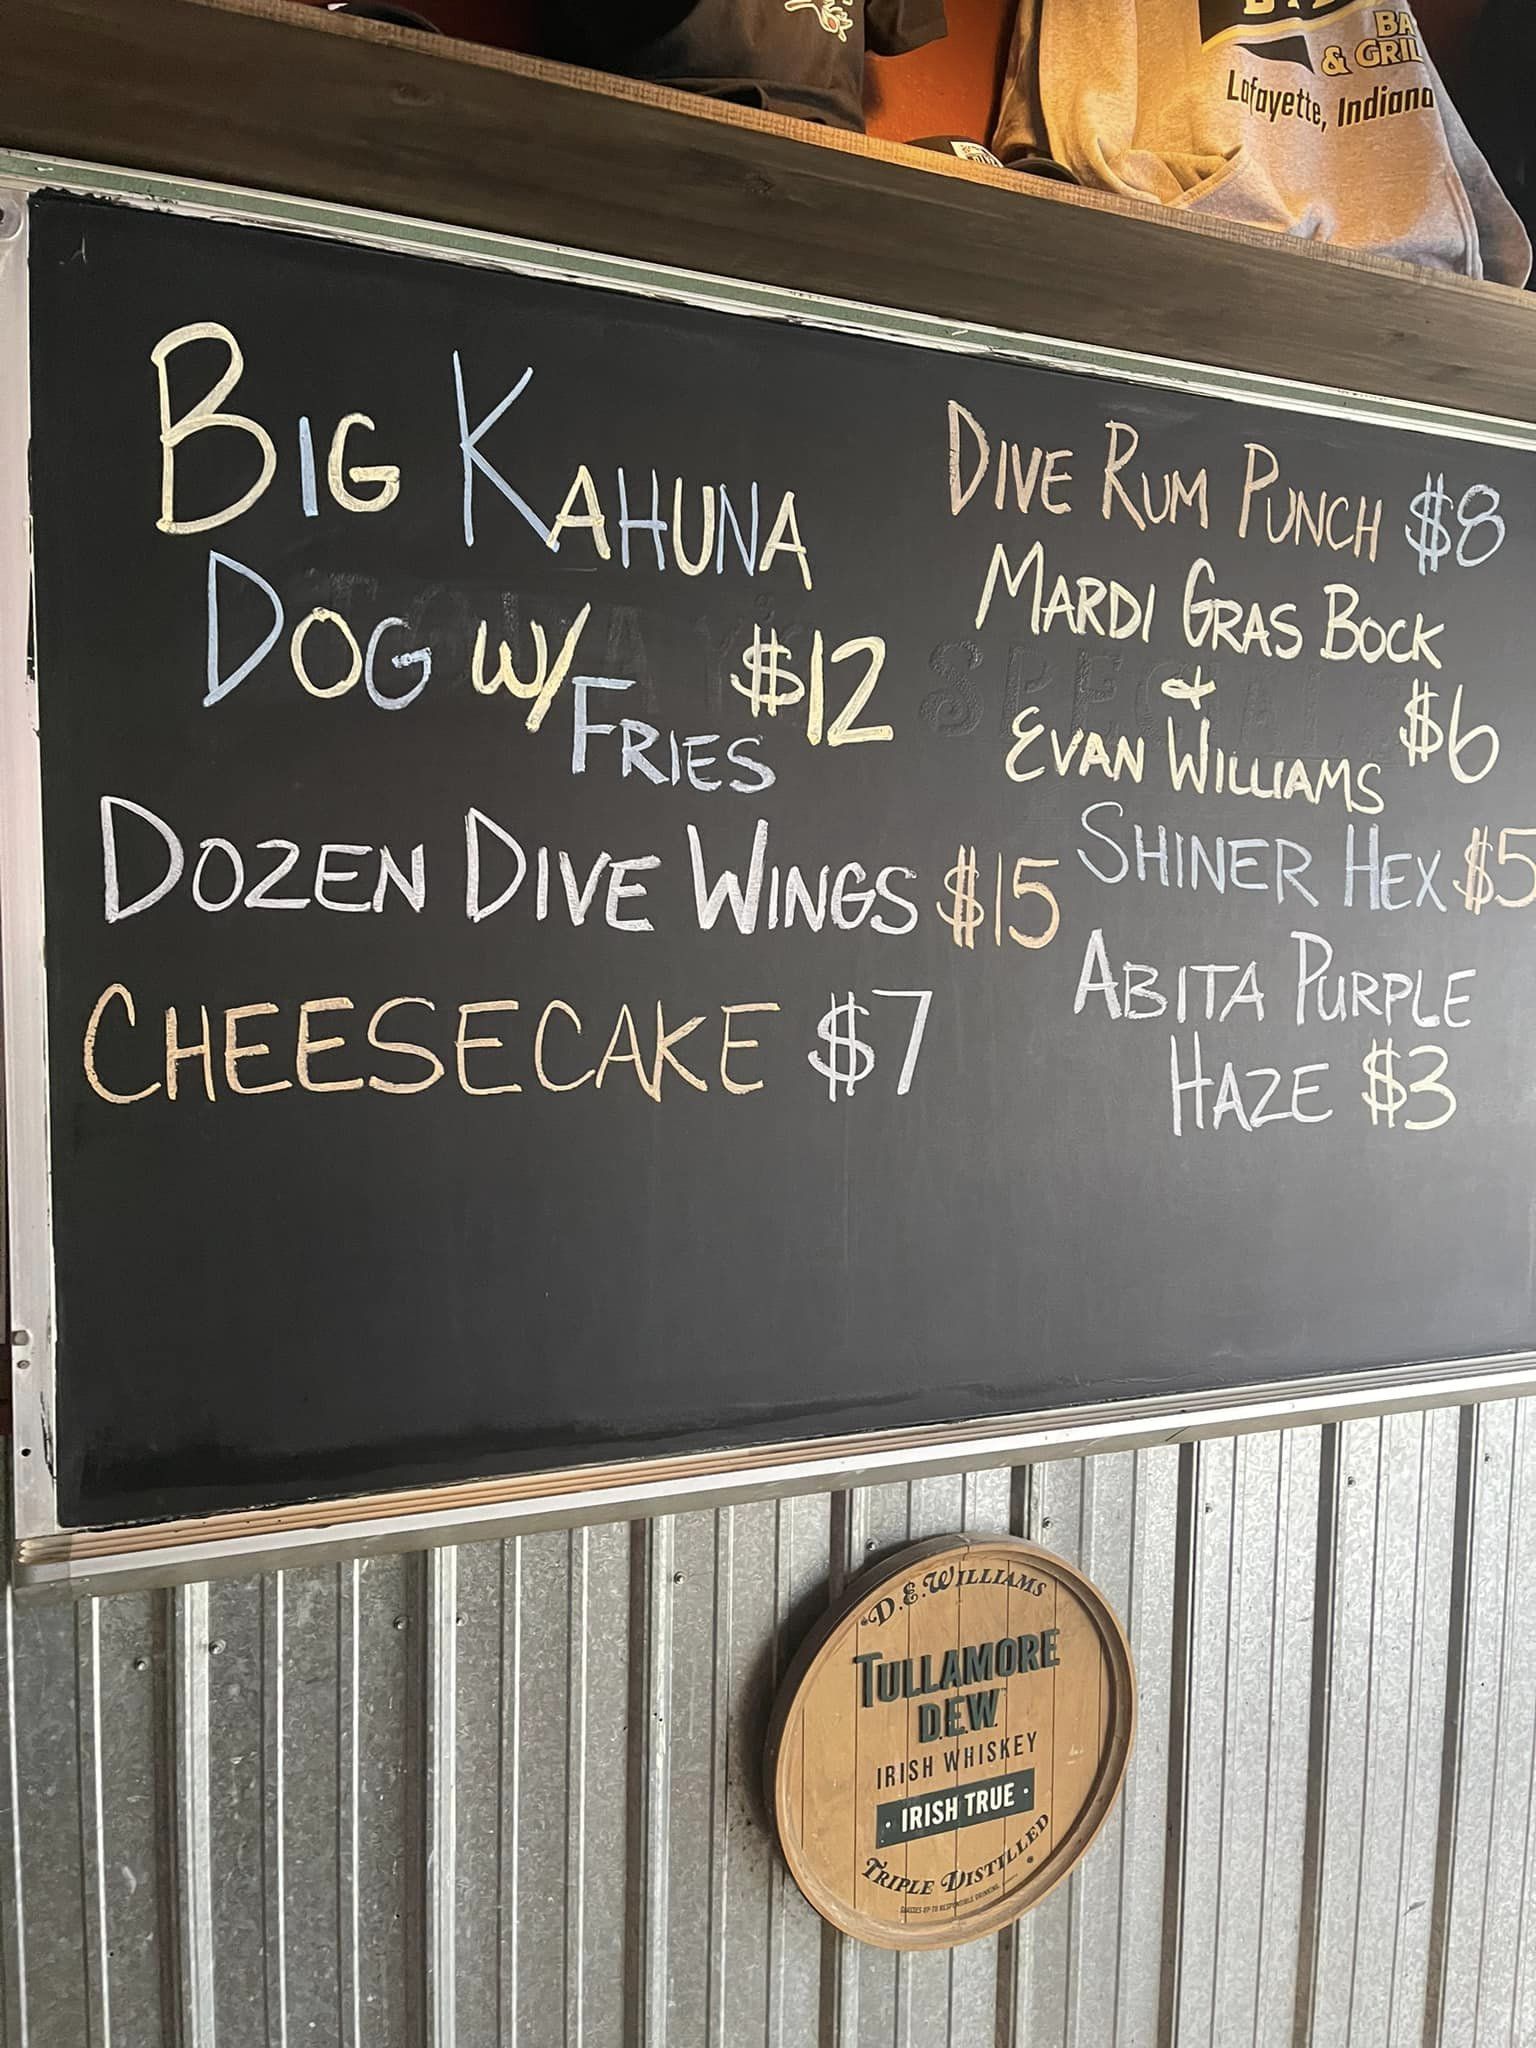 & GRIL
Lafayette, Indiana
BIG KAHUNA
DOG W/ FRIES $12
DOZEN DIVE WINGS $15
CHEESECAKE $7
DIVE RUM PUNCH $8
MARDI GRAS BOCK
&
EVAN WILLIAMS $6
SHINER HEX $5
ABITA PURPLE
HAZE $3
TODAY'S SPECIAL
D.E.WILLIAMS
TULLAMORE
D.E.W.
IRISH WHISKEY
· IRISH TRUE ·
TRIPLE DISTILLED